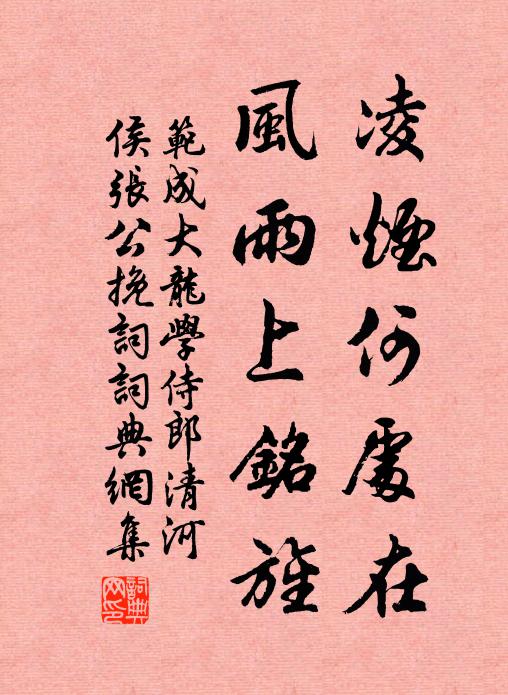 凌煙何處在
風雨上銘旌
範成大龍學侍郎清河
侯張公挽詞詞典網集
詞典网印